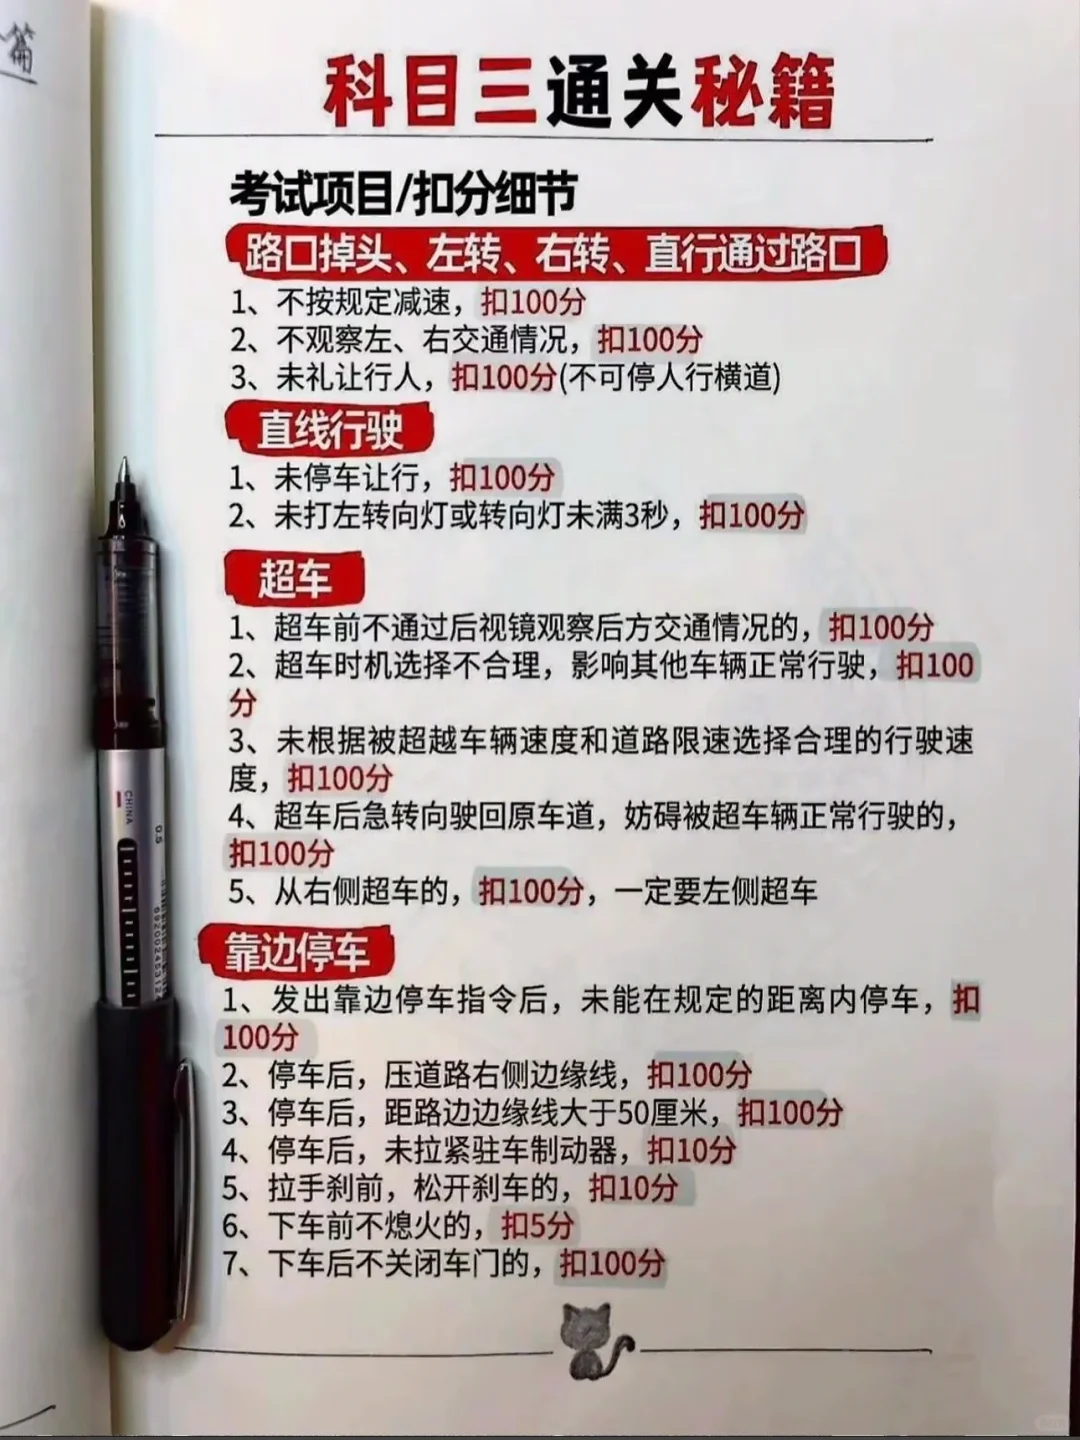 篇
科目三通关秘籍
考试项目/扣分细节
路口掉头、左转、右转、直行通过路口
1、不按规定减速，扣100分
2、不观察左、右交通情况，扣100分
3、未礼让行人，扣100分(不可停人行横道)
直线行驶
1、未停车让行，扣100分
2、未打左转向灯或转向灯未满3秒，扣100分
超车
1、超车前不通过后视镜观察后方交通情况的，扣100分
2、超车时机选择不合理，影响其他车辆正常行驶，扣100
分
3、未根据被超越车辆速度和道路限速选择合理的行驶速
度，扣100分
4、超车后急转向驶回原车道，妨碍被超车辆正常行驶的，
扣100分
5、从右侧超车的，扣100分，一定要左侧超车
靠边停车
1、发出靠边停车指令后，未能在规定的距离内停车，扣
100分
2、停车后，压道路右侧边缘线，扣100分
3、停车后，距路边边缘线大于50厘米，扣100分
4、停车后，未拉紧驻车制动器，扣10分
5、拉手刹前，松开刹车的，扣10分
6、下车前不熄火的，扣5分
7、下车后不关闭车门的，扣100分
CHINA
0.5